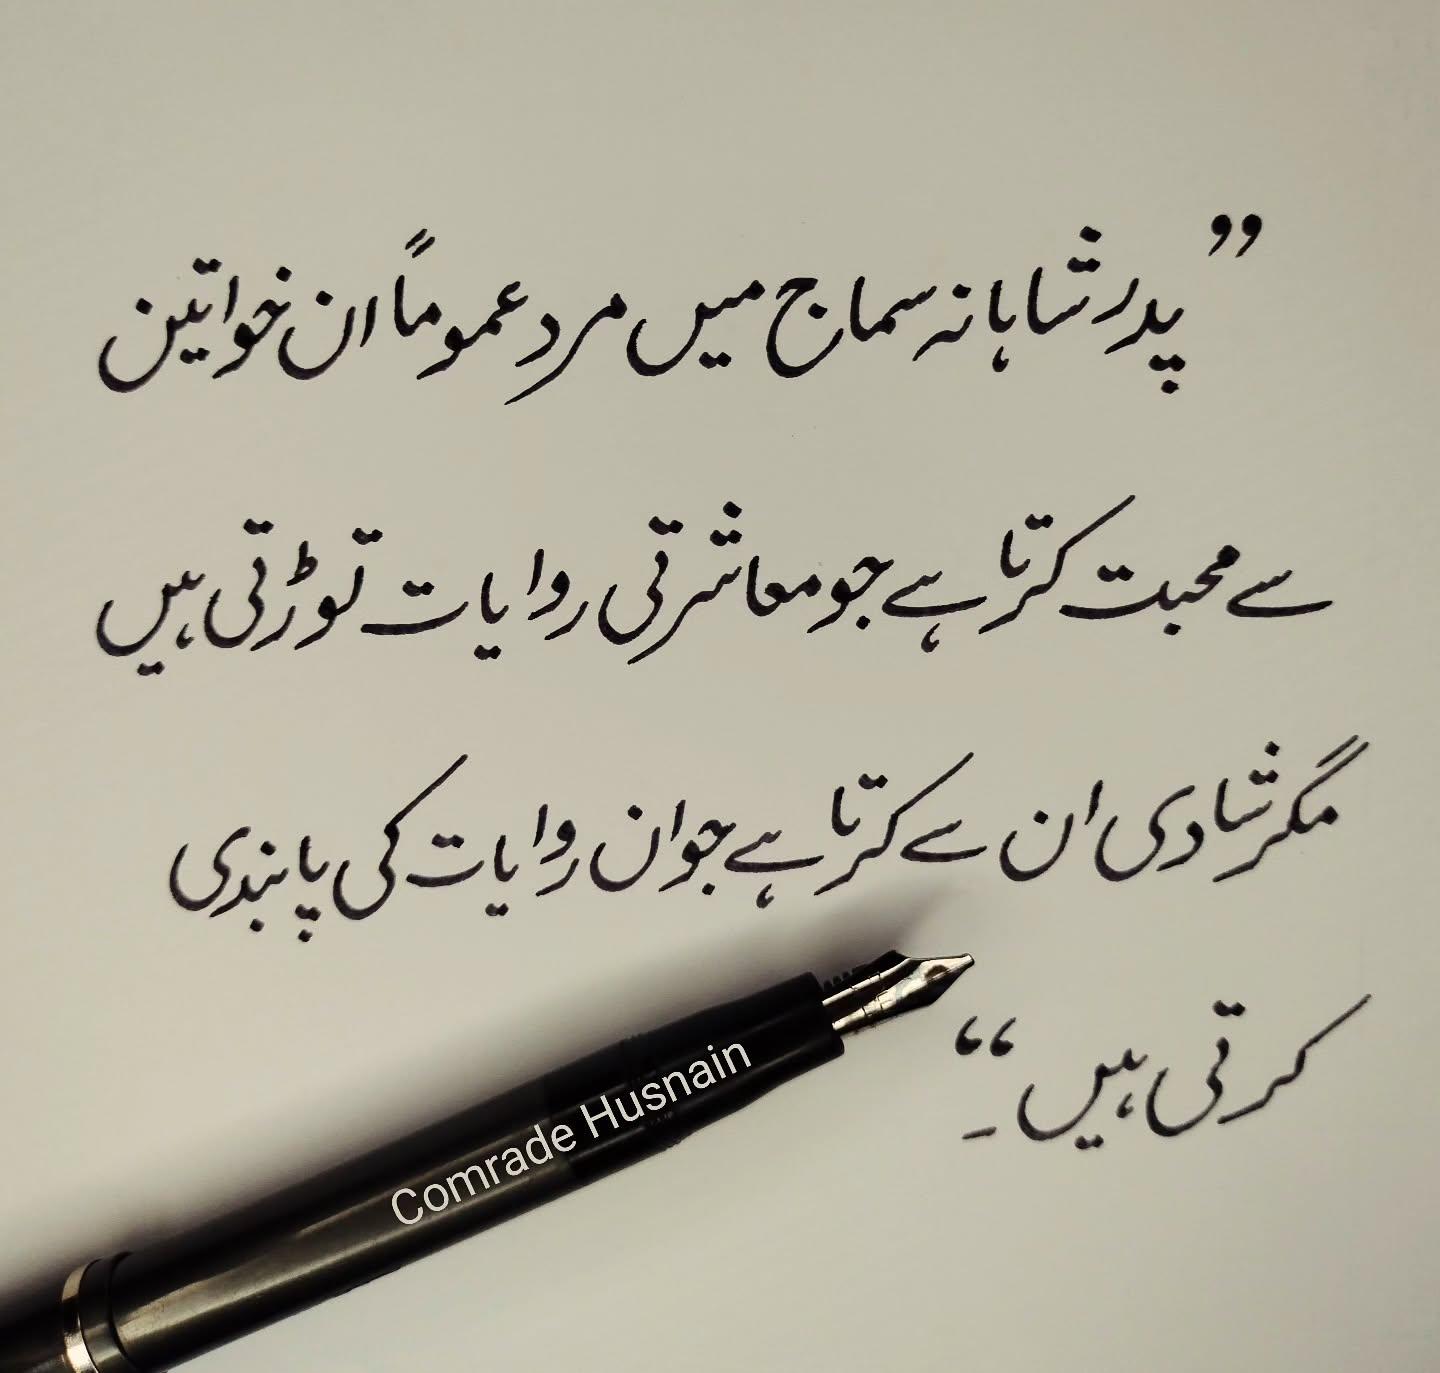 ”پدرشاہانہ سماج میں مرد عموماً ان خواتین
سے محبت کرتا ہے جو معاشرتی روایات توڑتی ہیں
مگر شادی ان سے کرتا ہے جو ان روایات کی پابندی
کرتی ہیں۔“
Comrade Husnain